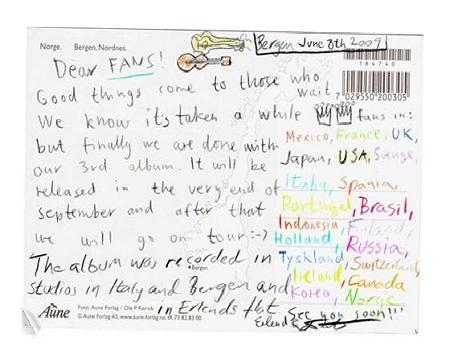 Norge. Bergen, Nordnes.
Bergen June 8th 2009
Dear FANS!
184740
7 029550 200305
Good things come to those who wait
We know it's taken a while
but finally we are done with
our 3rd album. It will be
released in the very end of
september and after that
we will go on tour :-)
The album was recorded in
Bergen
studios in Italy and Bergen and
in Erlends flat
fans in:
Mexico, France, UK,
Japan, USA, Sverige,
Italia, Spania,
Portugal, Brasil,
Indonesia, Finland,
Holland, Russia,
Tyskland, Switzerland,
Ireland, Canada
Korea, Norge
See you soon!!!
Erlend
Aune
Foto: Aune Forlag / Ole P. Rørvik
© Aune Forlag AS, www.aune-forlag.no, tlf. 73 82 83 00